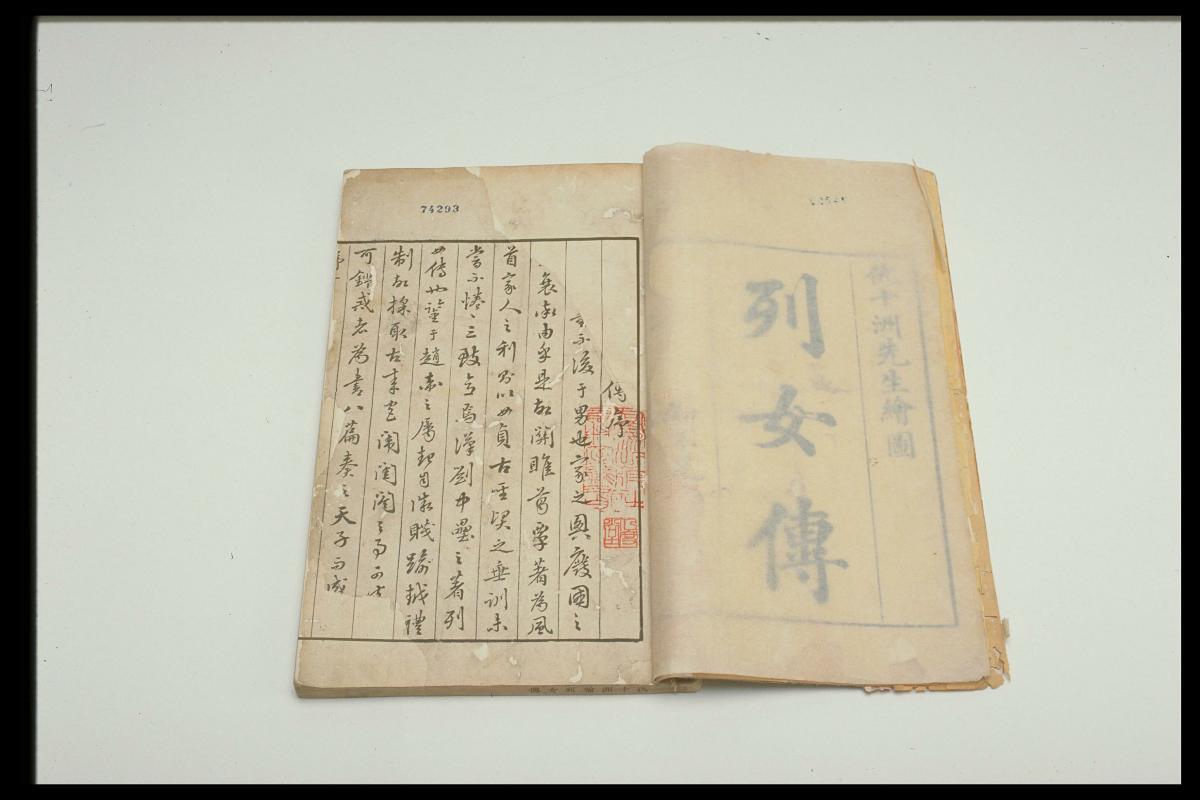 仇十洲先生繪圖
列女傳
74293
序
不後于男也家之興廢國之
衰由乎是故關雎葛覃著為風
首家人之利則以女貞古聖賢之垂訓未
嘗不惓惓三致意焉漢劉中壘之著列
女傳也鑒于趙衛之屬起自微賤踰越禮
制故採取古來宮闈閨閫之事可
可鑑戒者為書八篇奏之天子而成
序一
仇十洲繪列女傳